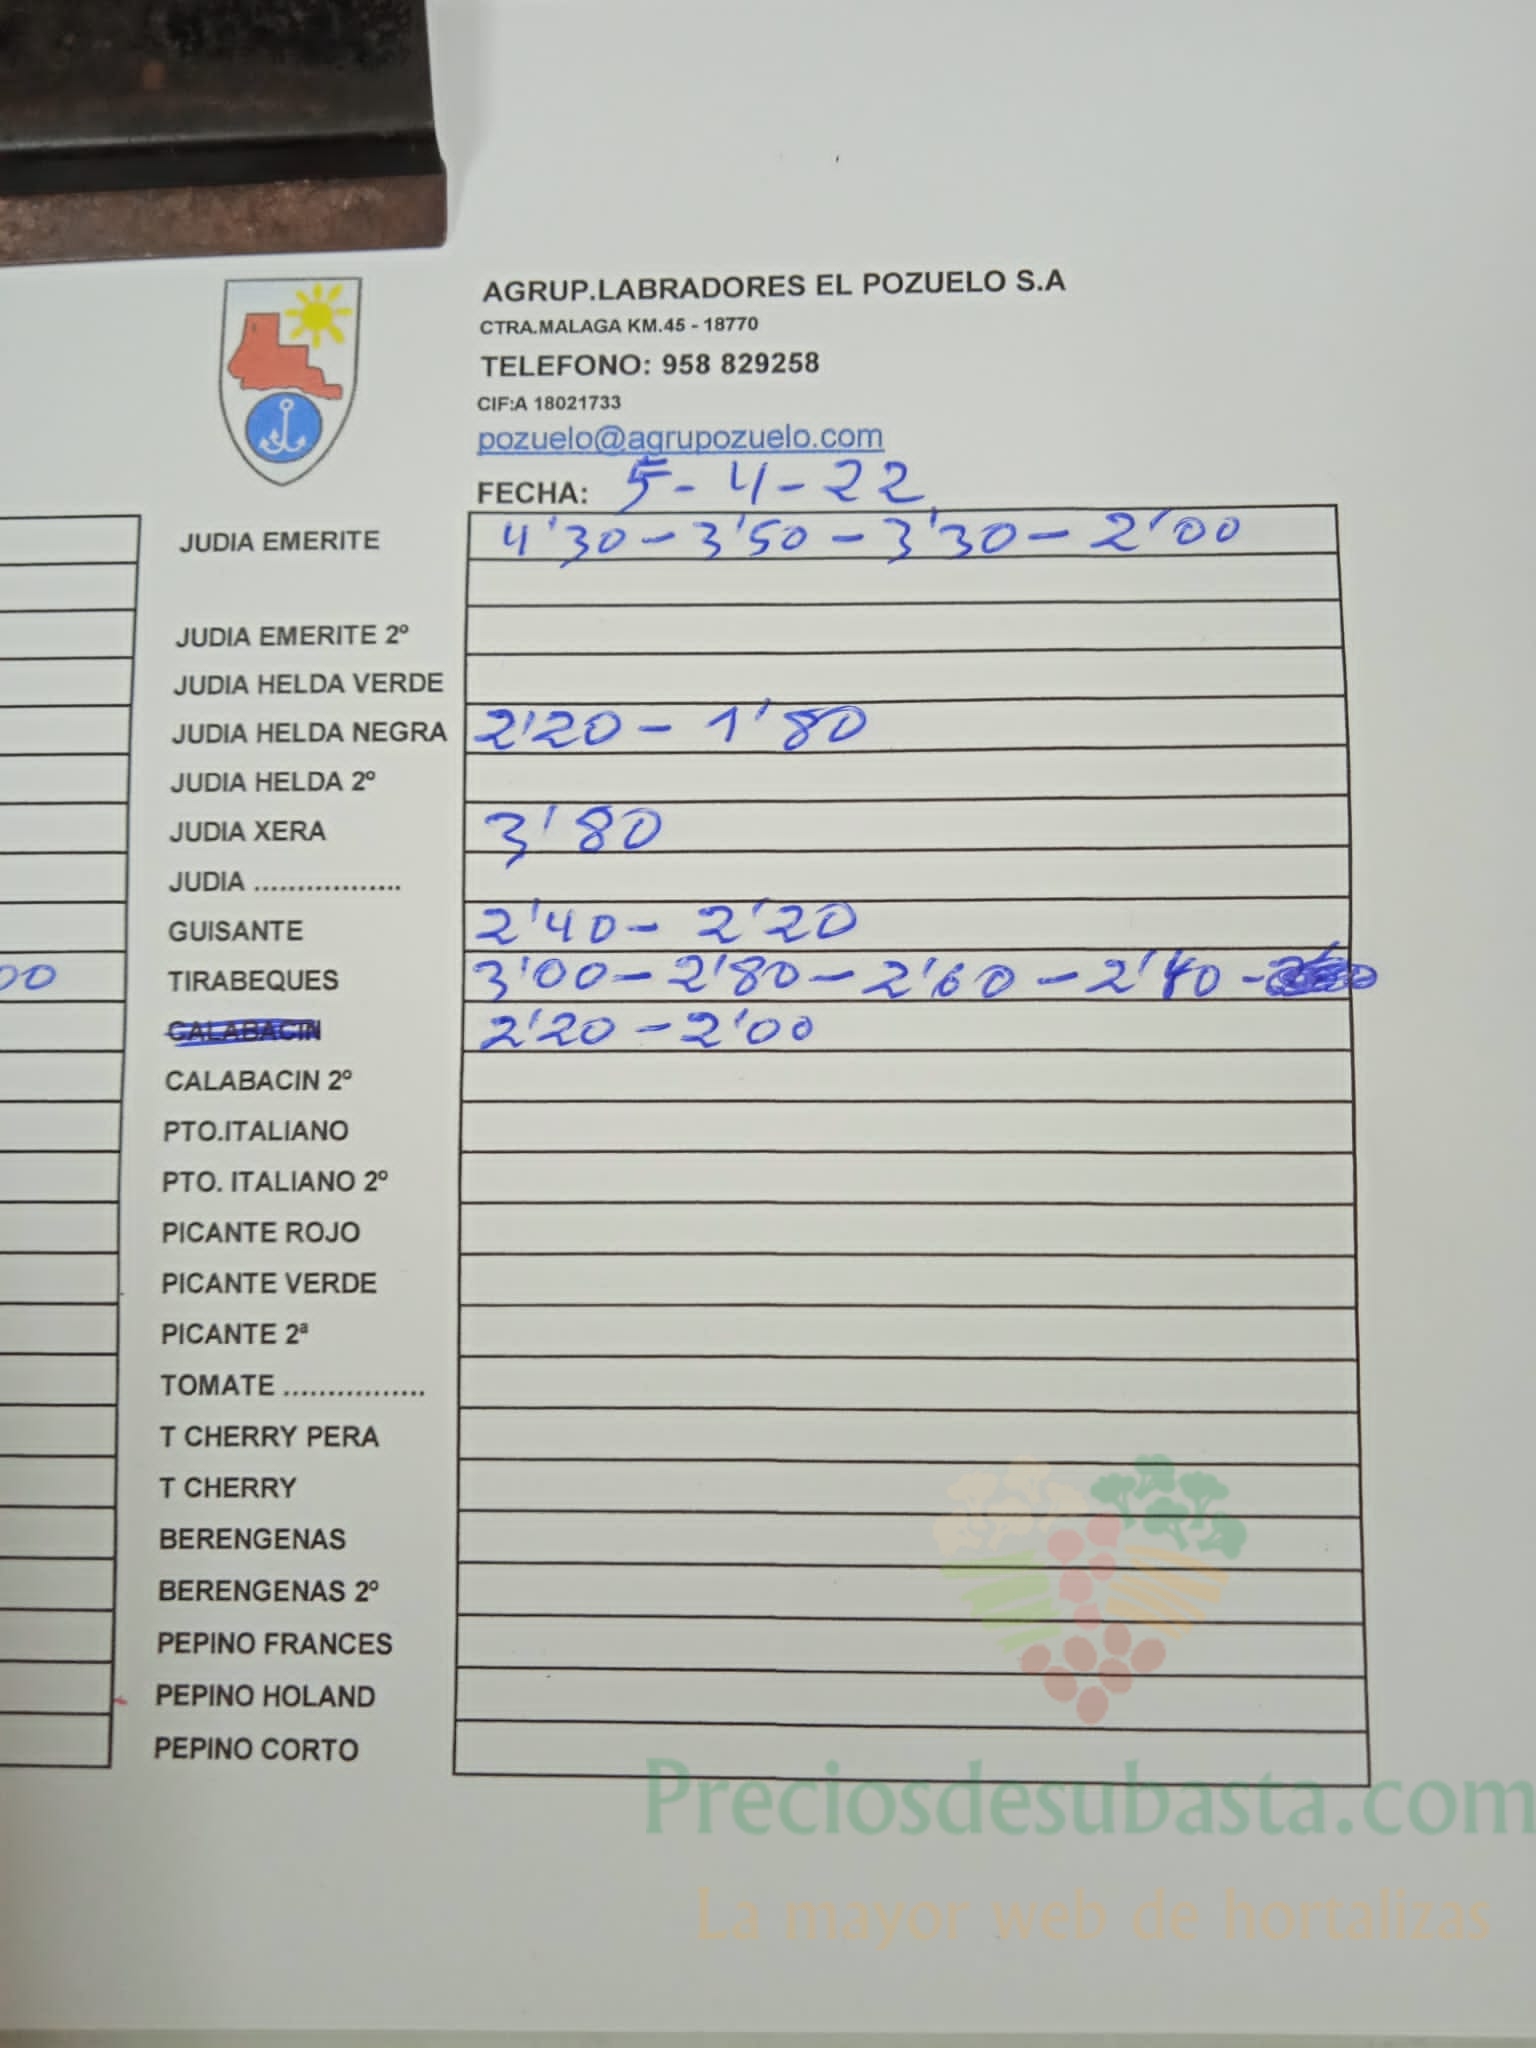 AGRUP.LABRADORES EL POZUELO S.A
CTRA.MALAGA KM.45 - 18770
TELEFONO: 958 829258
CIF:A 18021733
pozuelo@agrupozuelo.com
FECHA: 5-4-22
JUDIA EMERITE 4'30-3'50-3'30-2'00
JUDIA EMERITE 2º
JUDIA HELDA VERDE
JUDIA HELDA NEGRA 2'20-1'80
JUDIA HELDA 2º
JUDIA XERA 3'80
JUDIA .................
GUISANTE 2'40-2'20
00 TIRABEQUES 3'00-2'80-2'60-2'40-
CALABACIN 2'20-2'00
CALABACIN 2º
PTO.ITALIANO
PTO. ITALIANO 2º
PICANTE ROJO
PICANTE VERDE
PICANTE 2ª
TOMATE ................
T CHERRY PERA
T CHERRY
BERENGENAS
BERENGENAS 2º
PEPINO FRANCES
PEPINO HOLAND
PEPINO CORTO
Preciosdesubasta.com
La mayor web de hortalizas